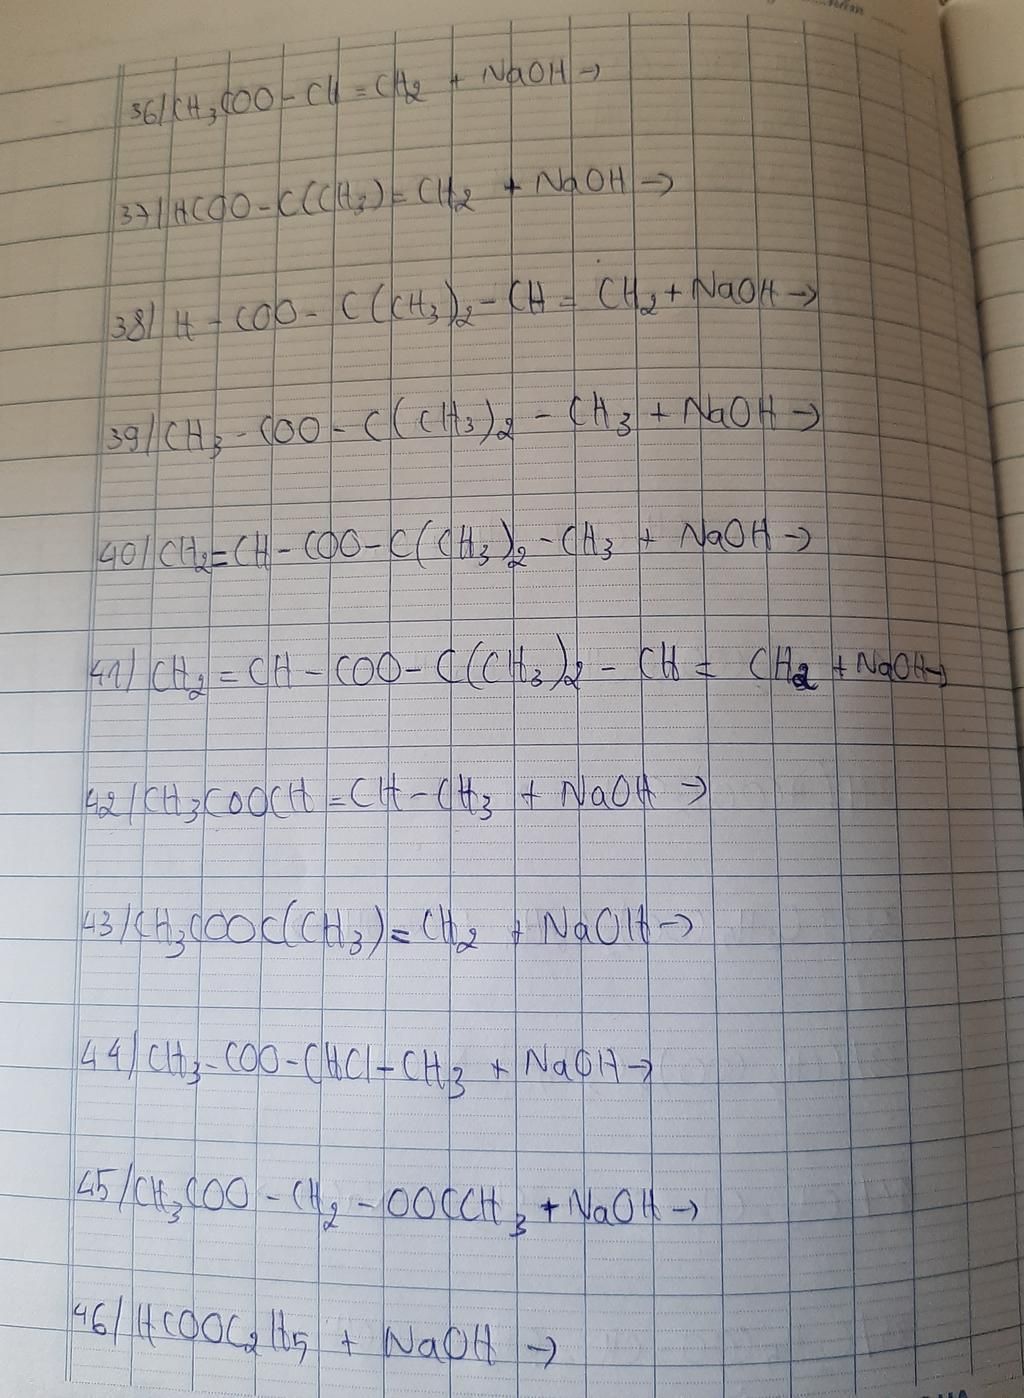 36/ CH₃COO - CH = CH₂ + NaOH →
37/ HCOO - C(CH₃) = CH₂ + NaOH →
38/ H - COO - C(CH₃)₂ - CH = CH₂ + NaOH →
39/ CH₃ - COO - C(CH₃)₂ - CH₃ + NaOH →
40/ CH₂ = CH - COO - C(CH₃)₂ - CH₃ + NaOH →
41/ CH₂ = CH - COO - C(CH₃)₂ - CH = CH₂ + NaOH →
42/ CH₃COOCH = CH - CH₃ + NaOH →
43/ CH₃COOC(CH₃) = CH₂ + NaOH →
44/ CH₃ - COO - CHCl - CH₃ + NaOH →
45/ CH₃COO - CH₂ - OOCCH₃ + NaOH →
46/ HCOOC₂H₅ + NaOH →